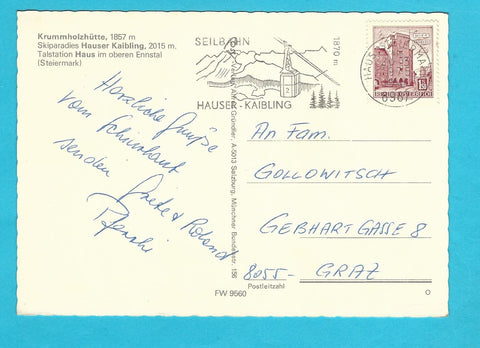 Krummholzhütte, 1857 m
Skiparadies Hauser Kaibling, 2015 m.
Talstation Haus im oberen Ennstal
(Steiermark)
SEILBAHN
1870 m
HAUSER-KAIBLING
2
HAUS
8967
REPUBLIK ÖSTERREICH
Herzliche Grüße
vom Schiurlaub
senden Grete & Roland
An Fam.
GOLLOWITSCH
GEBHARTGASSE 8
8055- GRAZ
Postleitzahl
Alfred Gründler, A-5013 Salzburg, Münchner Bundesstr. 156
FW 9560